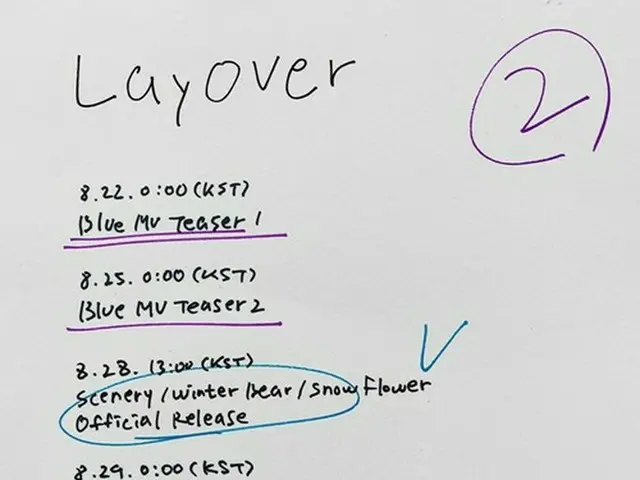 Layover
2
8.22. 0:00 (KST)
Blue MV Teaser 1
8.25. 0:00 (KST)
Blue MV Teaser 2
8.28. 13:00 (KST)
Scenery / Winter Bear / Snow Flower
Official Release
8.29. 0:00 (KST)